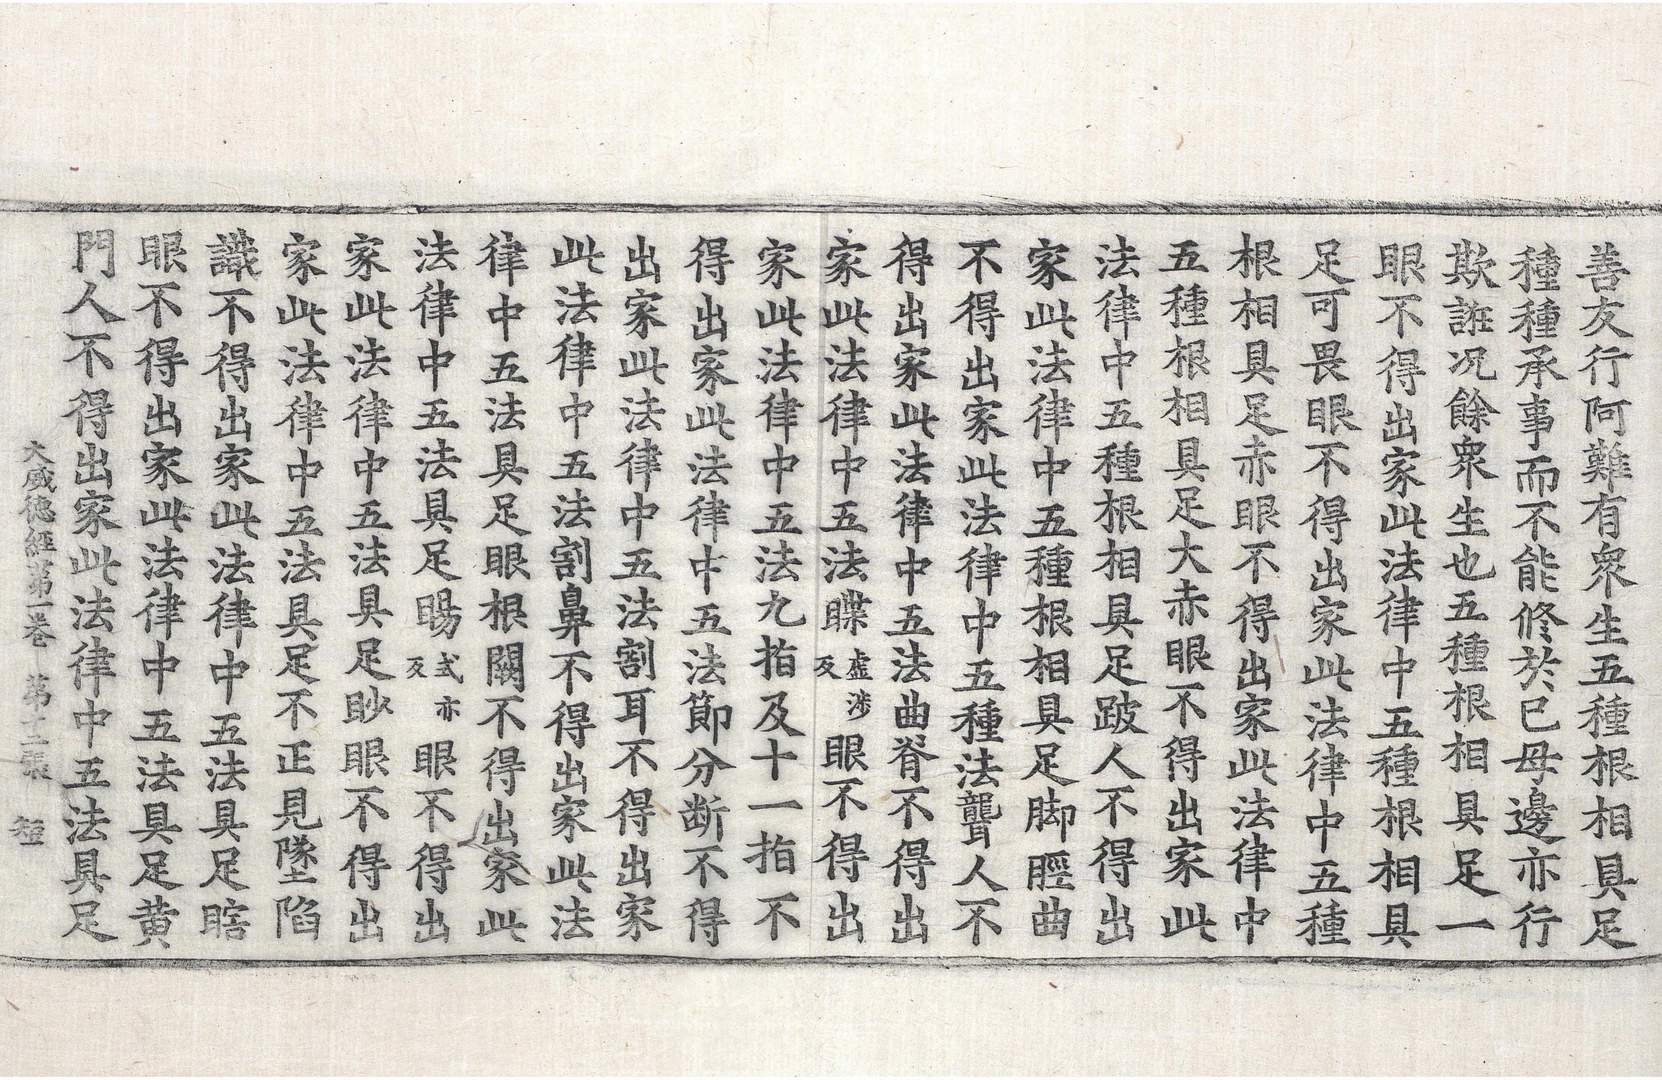 善友行阿難有衆生五種根相具足
種種承事而不能修於已母邊亦行
欺誑况餘衆生也五種根相具足一
眼不得出家此法律中五種根相具
足可畏眼不得出家此法律中五種
根相具足赤眼不得出家此法律中
五種根相具足大赤眼不得出家此
法律中五種根相具足跛人不得出
家此法律中五種根相具足脚脛曲
不得出家此法律中五種法聾人不
得出家此法律中五法曲脊不得出
家此法律中五法䁋虚涉反眼不得出
家此法律中五法九指及十一指不
得出家此法律中五法節分断不得
出家此法律中五法割耳不得出家
此法律中五法割鼻不得出家此法
律中五法具足眼根闕不得出家此
法律中五法具足眼式亦反眼不得出
家此法律中五法具足眇眼不得出
家此法律中五法具足不正見墜陷
識不得出家此法律中五法具足瞎
眼不得出家此法律中五法具足黄
門人不得出家此法律中五法具足
大威德經第一卷 第十二張 短